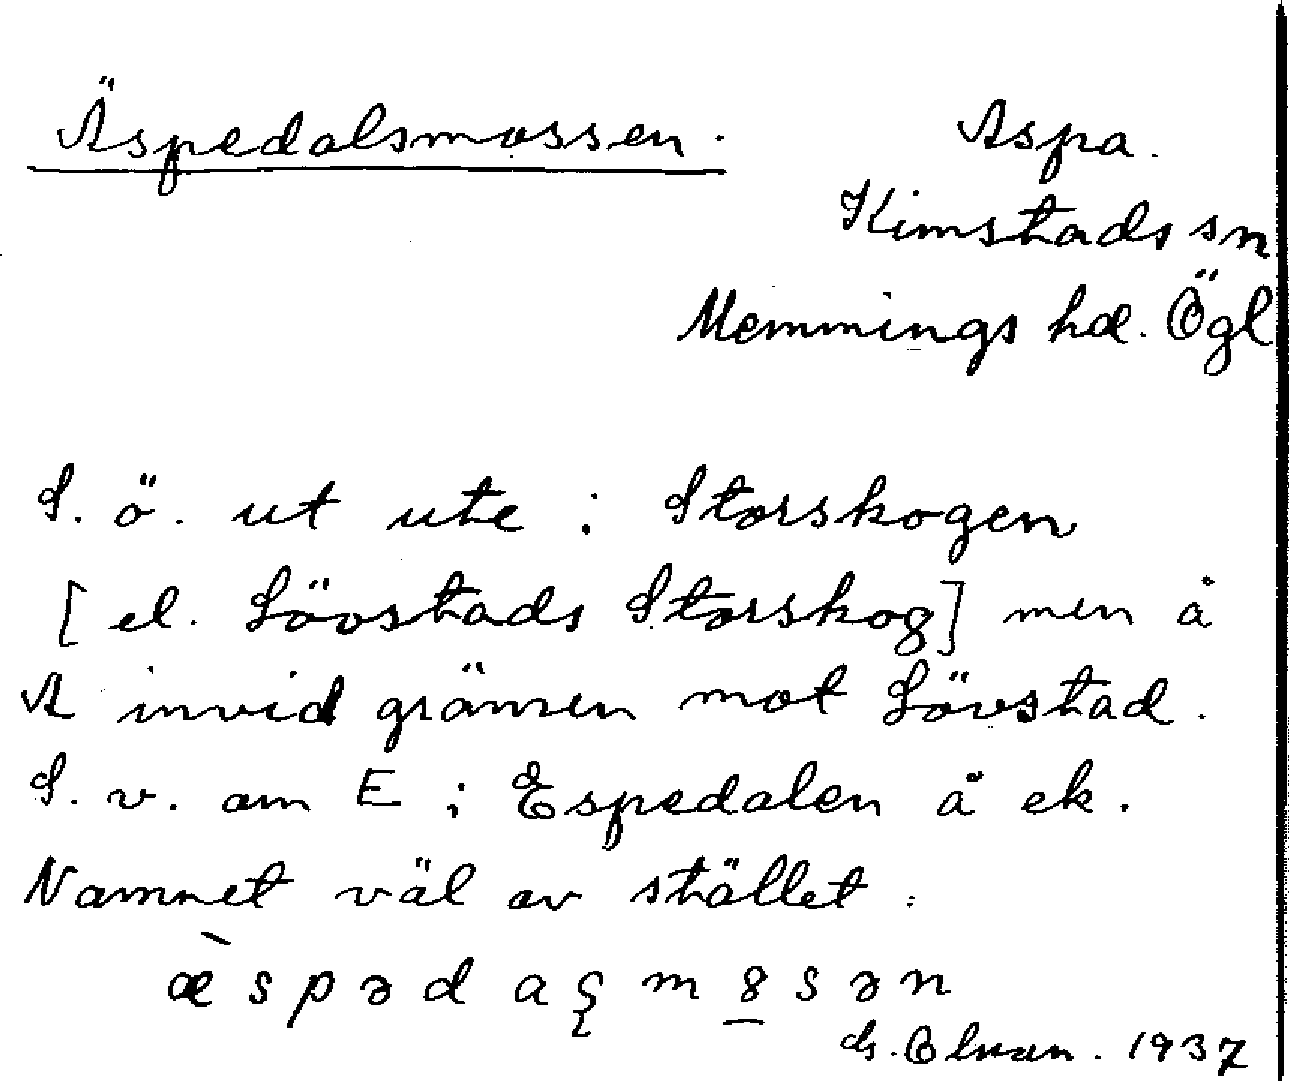 Äspedalsmossen.
Aspa.
Kimstads sn
Memmings hd. Ögl
S. ö. ut ute i Storskogen
[el. Lövstads Storskog] men å
A invid gränsen mot Lövstad.
S. v. om E i Espedalen å ek.
Namnet väl av stället.
æ̀ s p ə d a m s ə n
G. 1937